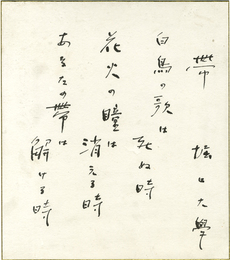 帯 堀口大學
白鳥の歌は
死ぬ時
花火の瞳は
消える時
あなたの帯は
解ける時